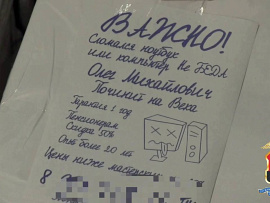 ВАЖНО!
Сломался ноутбук
или компьютер Не БЕДА
Олег Михайлович
Починит на Века
Гарантия 1 год
Пенсионерам
Скидка 50%
Опыт более 20 лет
Цены ниже
8